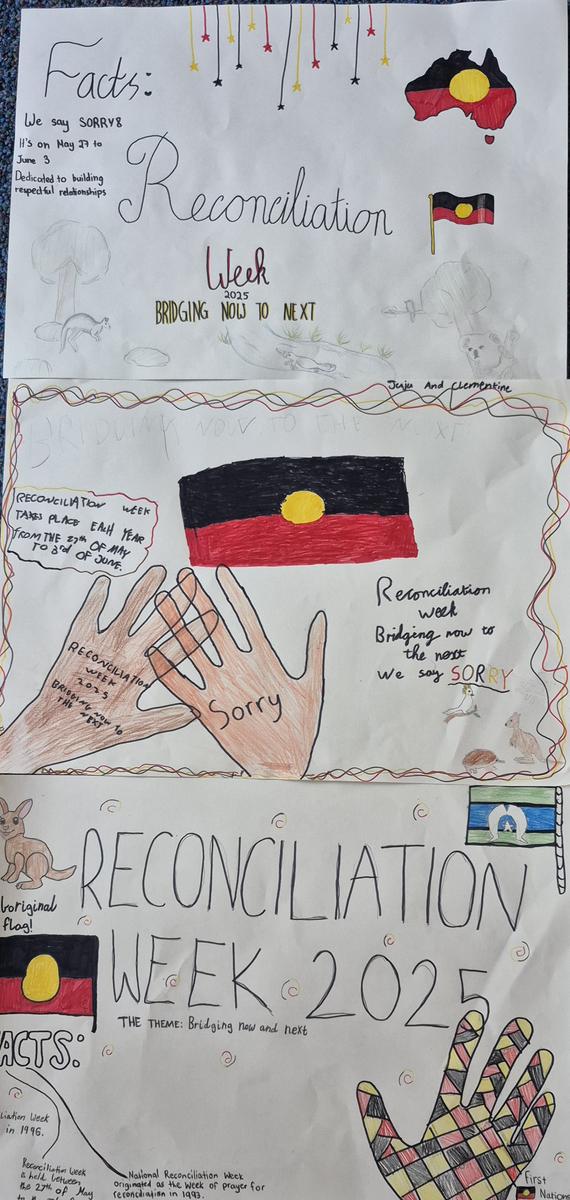 Facts:
We say SORRY
It's on May 27 to
June 3
Dedicated to building
respectful relationships
Reconciliation
Week
2025
BRIDGING NOW TO NEXT
Juju And Clementine
BRIDGING NOW TO THE NEXT
RECONCILIATION WEEK
TAKES PLACE EACH YEAR
FROM THE 27th OF MAY
TO 3rd OF JUNE.
RECONCILIATION
WEEK
2025
BRIDGING NOW TO
THE NEXT
Sorry
Reconciliation
week
Bridging now to
the next
We say SORRY
RECONCILIATION
boriginal
flag!
WEEK 2025
THE THEME: Bridging now and next
ACTS:
liation Week
in 1996.
Reconciliation Week
is held between
the 27th of May
National Reconciliation Week
originated as the Week of prayer for
reconciliation in 1993.
First
Nation